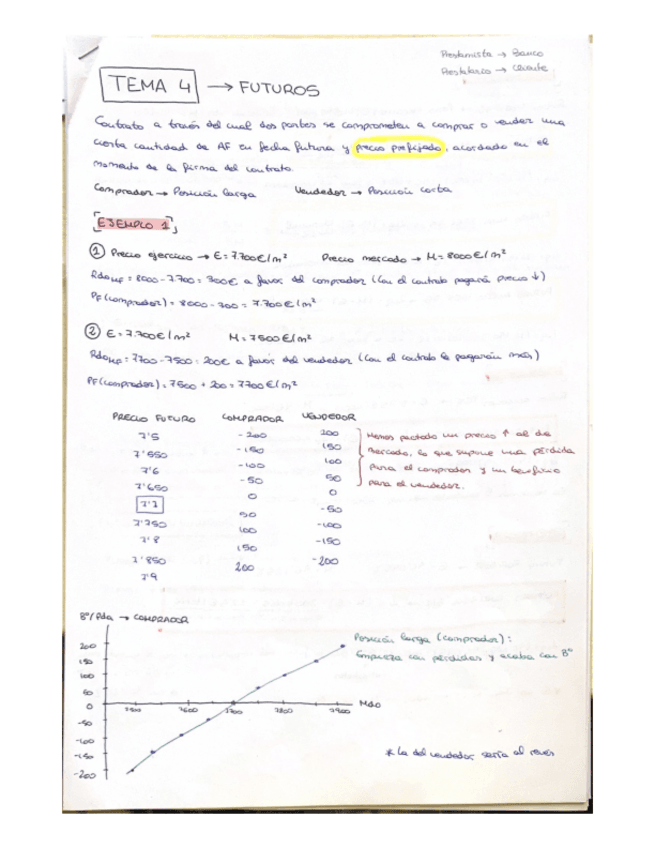 Prestamista → Banco
Prestatario → Cliente
TEMA 4 → FUTUROS
Contrato a través del cual dos partes se comprometen a comprar o vender una
cierta cantidad de AF en fecha futura y precio prefijado, acordado en el
momento de la firma del contrato.
Comprador → Posición larga Vendedor → Posición corta
EJEMPLO 1
① Precio ejercicio → E = 7.700€/m² Precio mercado → M = 8000€/m²
= 8000 - 7.700 = 300€ a favor del comprador (Con el contrato pagará precio ↓)
PF (comprador) = 8000 - 300 = 7.700€/m²
② E = 7.700€/m² M = 7500€/m²
= 7700 - 7500 = 200€ a favor del vendedor (Con el contrato le pagarán más)
PF (comprador) = 7500 + 200 = 7700€/m²
PRECIO FUTURO COMPRADOR VENDEDOR
7'5 -200 200
7'550 -150 150
7'6 -100 100
7'650 -50 50
7'7 0 0
7'750 50 -50
7'8 100 -100
7'850 150 -150
7'9 200 -200
Hemos pactado un precio ↑ al de
mercado, lo que supone una pérdida
para el comprador y un beneficio
para el vendedor.
Bº/Pda → COMPRADOR
200
150
100
50
0
-50
-100
-150
-200
7500 7600 7700 7800 7900 Mdo
Posición larga (comprador):
Empieza con pérdidas y acaba con Bº
* La del vendedor sería al revés